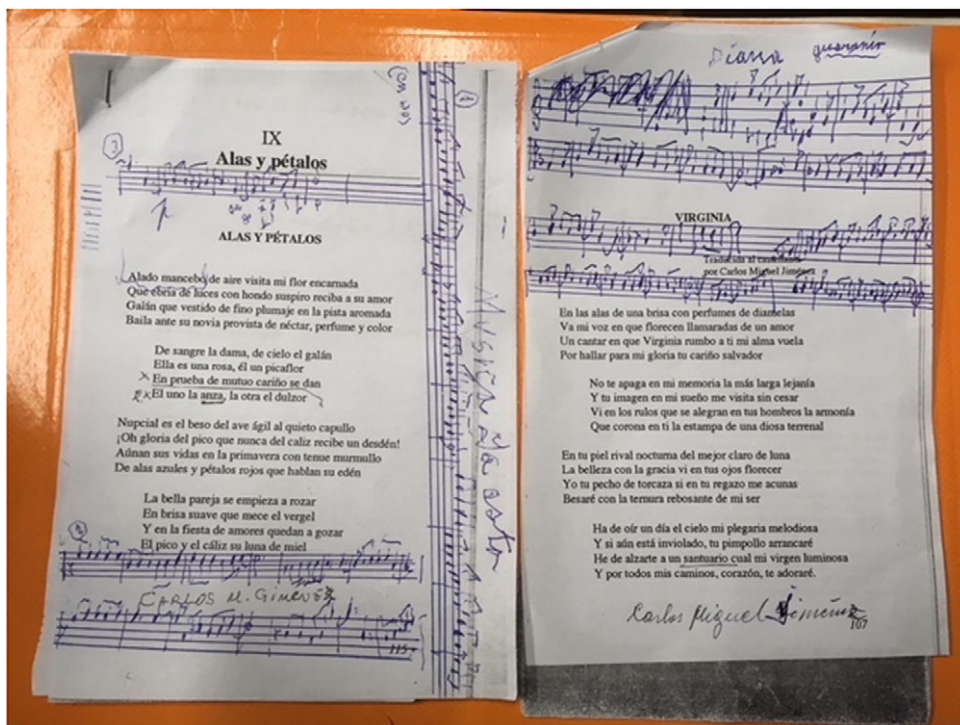 IX
Alas y pétalos
ALAS Y PÉTALOS
Alado mancebo de aire visita mi flor encarnada
Que ebria de luces con hondo suspiro reciba a su amor
Galán que vestido de fino plumaje en la pista aromada
Baila ante su novia provista de néctar, perfume y color
De sangre la dama, de cielo el galán
Ella es una rosa, él un picaflor
En prueba de mutuo cariño se dan
El uno la anza, la otra el dulzor
Nupcial es el beso del ave ágil al quieto capullo
¡Oh gloria del pico que nunca del caliz recibe un desdén!
Aúnan sus vidas en la primavera con tenue murmullo
De alas azules y pétalos rojos que hablan su edén
La bella pareja se empieza a rozar
En brisa suave que mece el vergel
Y en la fiesta de amores quedan a gozar
El pico y el cáliz su luna de miel
CARLOS M. GIMENEZ
115
Diana
VIRGINIA
Traducida al castellano
por Carlos Miguel Jiménez
En las alas de una brisa con perfumes de diamelas
Va mi voz en que florecen llamaradas de un amor
Un cantar en que Virginia rumbo a ti mi alma vuela
Por hallar para mi gloria tu cariño salvador
No te apaga en mi memoria la más larga lejanía
Y tu imagen en mi sueño me visita sin cesar
Vi en los rulos que se alegran en tus hombros la armonía
Que corona en ti la estampa de una diosa terrenal
En tu piel rival nocturna del mejor claro de luna
La belleza con la gracia vi en tus ojos florecer
Yo tu pecho de torcaza si en tu regazo me acunas
Besaré con la ternura rebosante de mi ser
Ha de oír un día el cielo mi plegaria melodiosa
Y si aún está inviolado, tu pimpollo arrancaré
He de alzarte a un santuario cual mi virgen luminosa
Y por todos mis caminos, corazón, te adoraré.
Carlos Miguel Jiménez
107